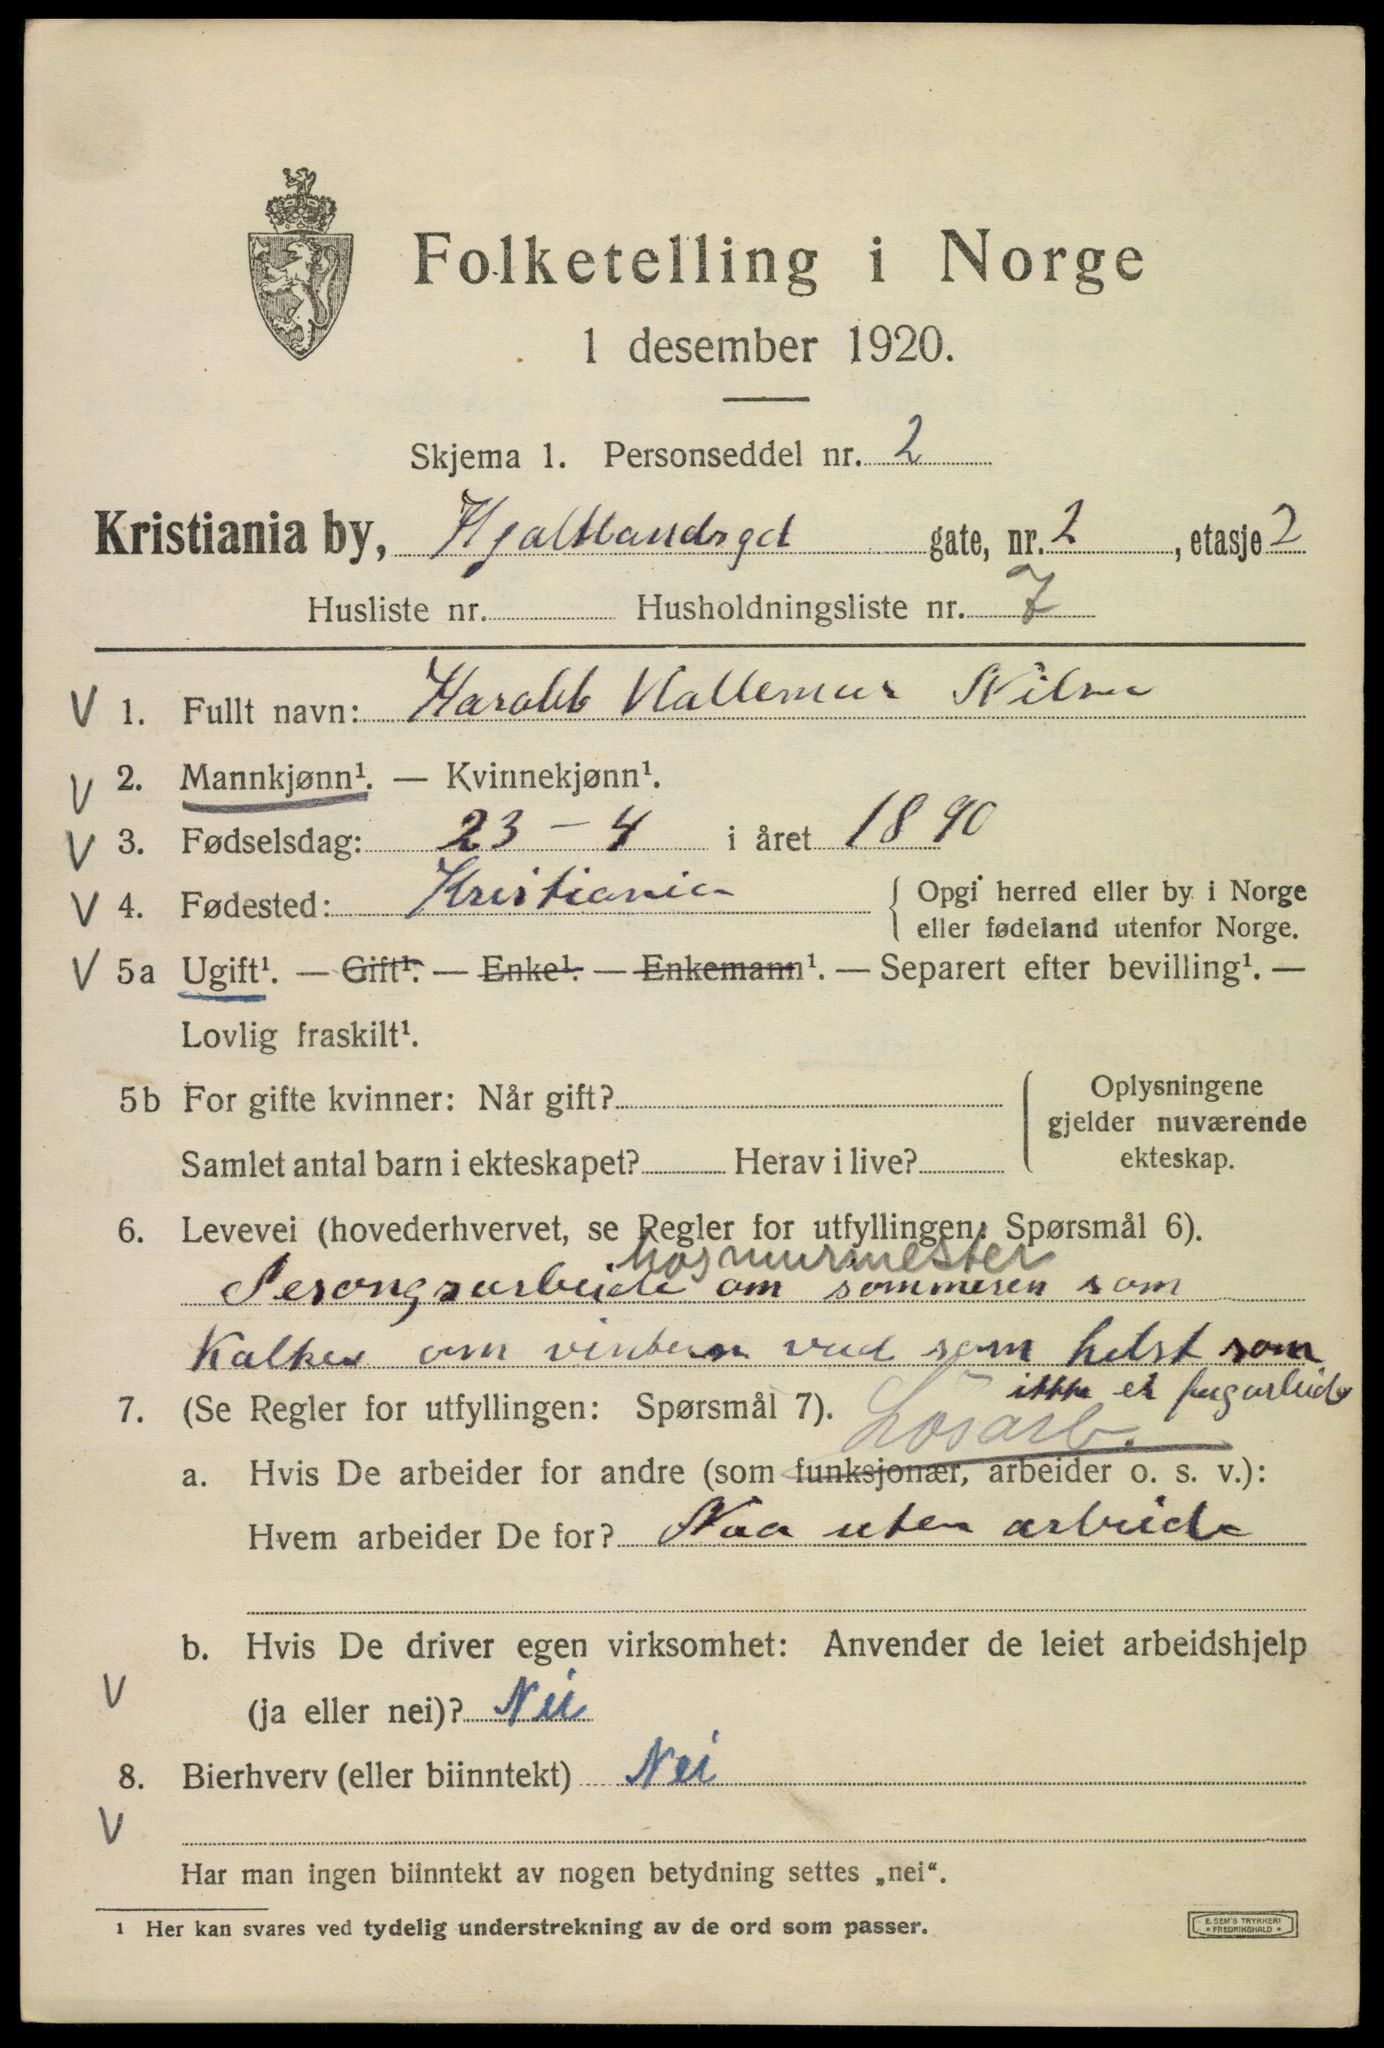 Folketelling i Norge
1 desember 1920.
Skjema 1. Personseddel nr. 2
Kristiania by, Hjaltlandsgt gate, nr. 2, etasje 2
Husliste nr. Husholdningsliste nr. 7
V 1. Fullt navn: Harald Valdemar Nilsen
V 2. Mannkjønn¹. — Kvinnekjønn¹.
V 3. Fødselsdag: 23 – 4 i året 1890
V 4. Fødested: Kristiania { Opgi herred eller by i Norge
eller fødeland utenfor Norge.
V 5a Ugift¹. — Gift¹. — Enke¹. — Enkemann¹. — Separert efter bevilling¹. —
Lovlig fraskilt¹.
5b For gifte kvinner: Når gift? { Oplysningene
gjelder nuværende
Samlet antal barn i ekteskapet? Herav i live? ekteskap.
6. Levevei (hovederhvervet, se Regler for utfyllingen: Spørsmål 6).
hos murmester
Sesongsarbeide om sommeren som
Kalker om vintern vad som helst som
ikke er fagarbeide
7. (Se Regler for utfyllingen: Spørsmål 7). Løsarb.
a. Hvis De arbeider for andre (som funksjonær, arbeider o. s. v.):
Hvem arbeider De for? Naa uten arbeide
b. Hvis De driver egen virksomhet: Anvender de leiet arbeidshjelp
V (ja eller nei)? Nei
8. Bierhverv (eller biinntekt) Nei
V
Har man ingen biinntekt av nogen betydning settes „nei“.
¹ Her kan svares ved tydelig understrekning av de ord som passer.
E. SEM'S TRYKKERI
* FREDRIKSHALD *